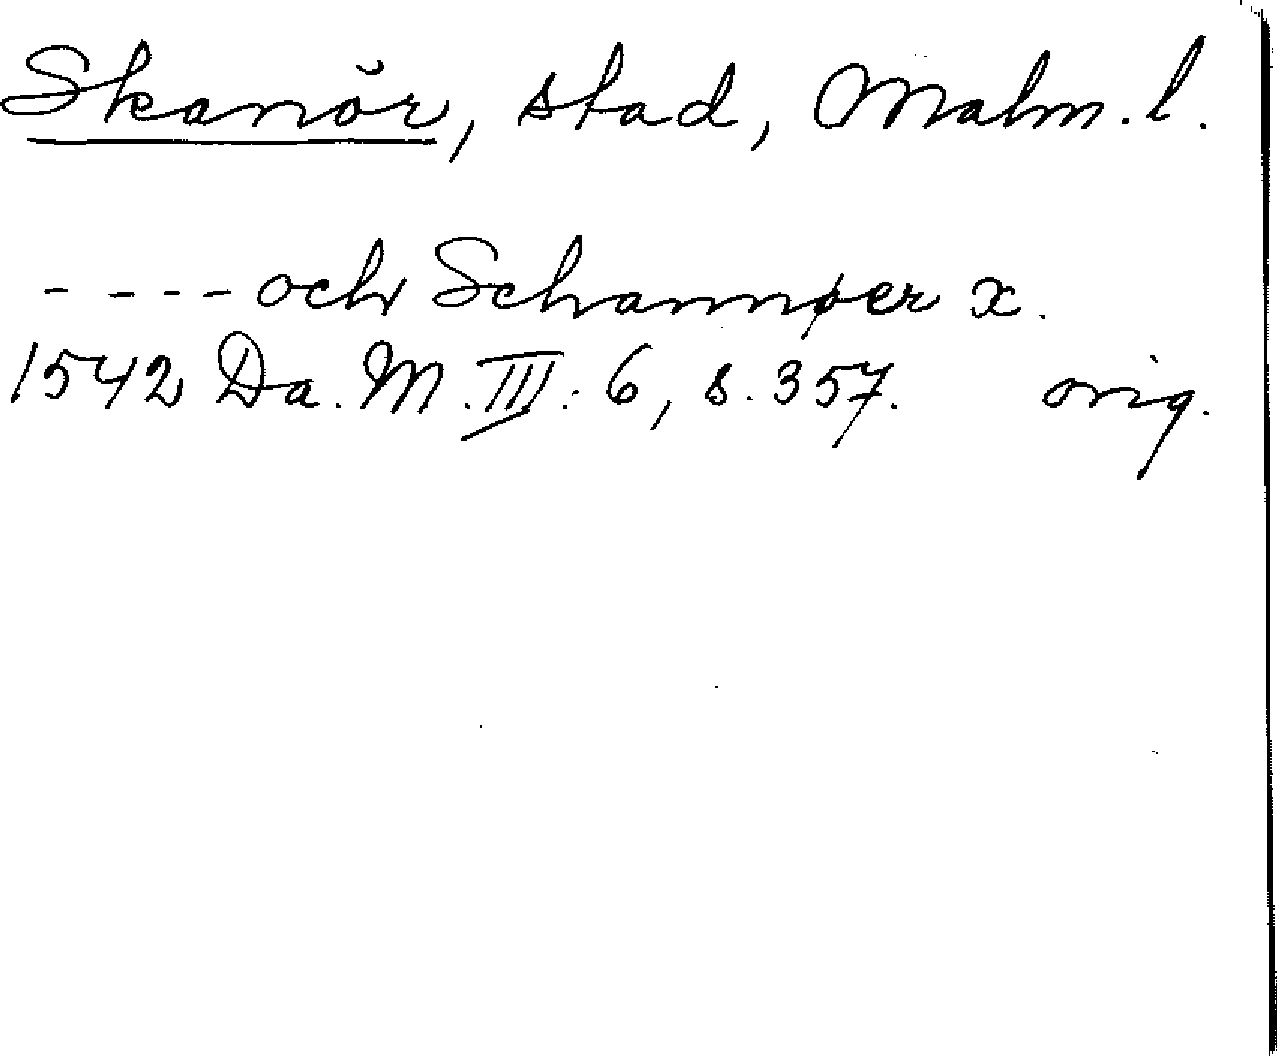 Skanör, stad, Malm. l.
- - - - och Schannøer x.
1542 Da. M. III: 6, s. 357. orig.